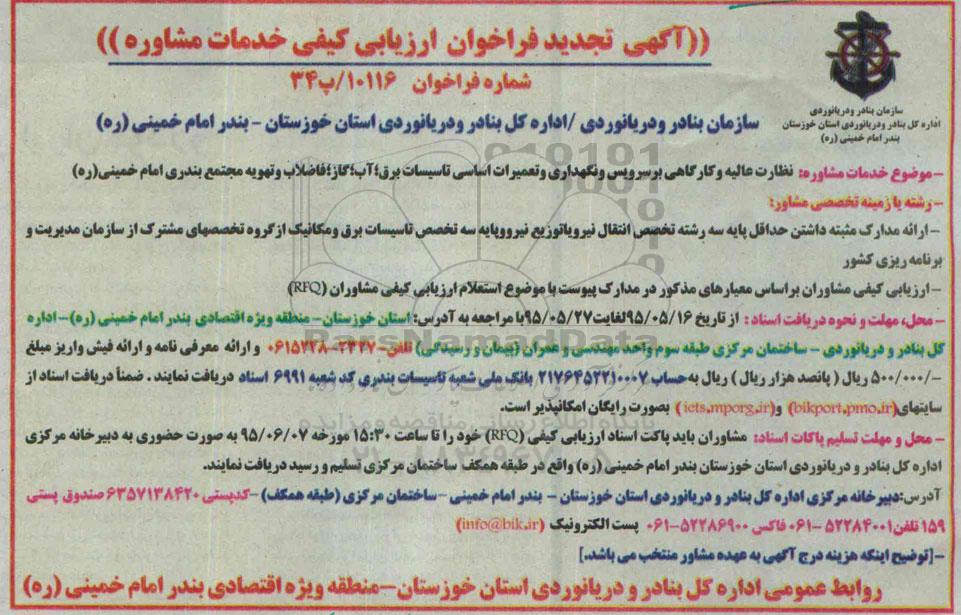 ((آگهی تجدید فراخوان ارزیابی کیفی خدمات مشاوره))
شماره فراخوان ۱۰۱۱۶/پ۳۴
سازمان بنادر ودریانوردی
اداره کل بنادر ودریانوردی استان خوزستان
بندر امام خمینی (ره)
سازمان بنادر ودریانوردی /اداره کل بنادر ودریانوردی استان خوزستان - بندر امام خمینی (ره)
-موضوع خدمات مشاوره: نظارت عالیه وکارگاهی برسرویس ونگهداری وتعمیرات اساسی تاسیسات برق؛آب؛گاز؛فاضلاب وتهویه مجتمع بندری امام خمینی(ره)
-رشته یا زمینه تخصصی مشاور:
-ارائه مدارک مثبته داشتن حداقل پایه سه رشته تخصص انتقال نیرویاتوزیع نیرووپایه سه تخصص تاسیسات برق ومکانیک ازگروه تخصصهای مشترک از سازمان مدیریت و
برنامه ریزی کشور
-ارزیابی کیفی مشاوران براساس معیارهای مذکور در مدارک پیوست با موضوع استعلام ارزیابی کیفی مشاوران (RFQ)
-محل، مهلت و نحوه دریافت اسناد : از تاریخ ۹۵/۰۵/۱۶لغایت۹۵/۰۵/۲۷با مراجعه به آدرس: استان خوزستان- منطقه ویژه اقتصادی بندر امام خمینی (ره)-اداره
کل بنادر و دریانوردی - ساختمان مرکزی طبقه سوم واحد مهندسی و عمران (پیمان و رسیدگی) تلفن-۲۳۲۷-۰۶۱۵۲۲۸ و ارائه معرفی نامه و ارائه فیش واریز مبلغ
-/۵۰۰/۰۰۰ ریال ( پانصد هزار ریال ) ریال به حساب ۲۱۷۶۴۵۲۲۱۰۰۰۷ بانک ملی شعبه تاسیسات بندری کد شعبه ۶۹۹۱ اسناد دریافت نمایند . ضمناً دریافت اسناد از
سایتهای(bikport.pmo.ir) و(iets.mporg.ir) بصورت رایگان امکانپذیر است.
- محل و مهلت تسلیم پاکات اسناد: مشاوران باید پاکت اسناد ارزیابی کیفی (RFQ) خود را تا ساعت ۱۵:۳۰ مورخه ۹۵/۰۶/۰۷ به صورت حضوری به دبیرخانه مرکزی
اداره کل بنادر و دریانوردی استان خوزستان بندر امام خمینی (ره) واقع در طبقه همکف ساختمان مرکزی تسلیم و رسید دریافت نمایند.
آدرس:دبیرخانه مرکزی اداره کل بنادر و دریانوردی استان خوزستان - بندر امام خمینی -ساختمان مرکزی (طبقه همکف) -کدپستی ۶۳۵۷۱۳۸۴۲۰ صندوق پستی
۱۵۹ تلفن۵۲۲۸۴۰۰۱-۰۶۱ فاکس ۵۲۲۸۶۹۰۰-۰۶۱ پست الکترونیک (info@bik.ir)
-[توضیح اینکه هزینه درج آگهی به عهده مشاور منتخب می باشد.]
روابط عمومی اداره کل بنادر و دریانوردی استان خوزستان-منطقه ویژه اقتصادی بندر امام خمینی (ره)
ParsNamadData
پایگاه اطلاع رسانی مناقصه و مزایده